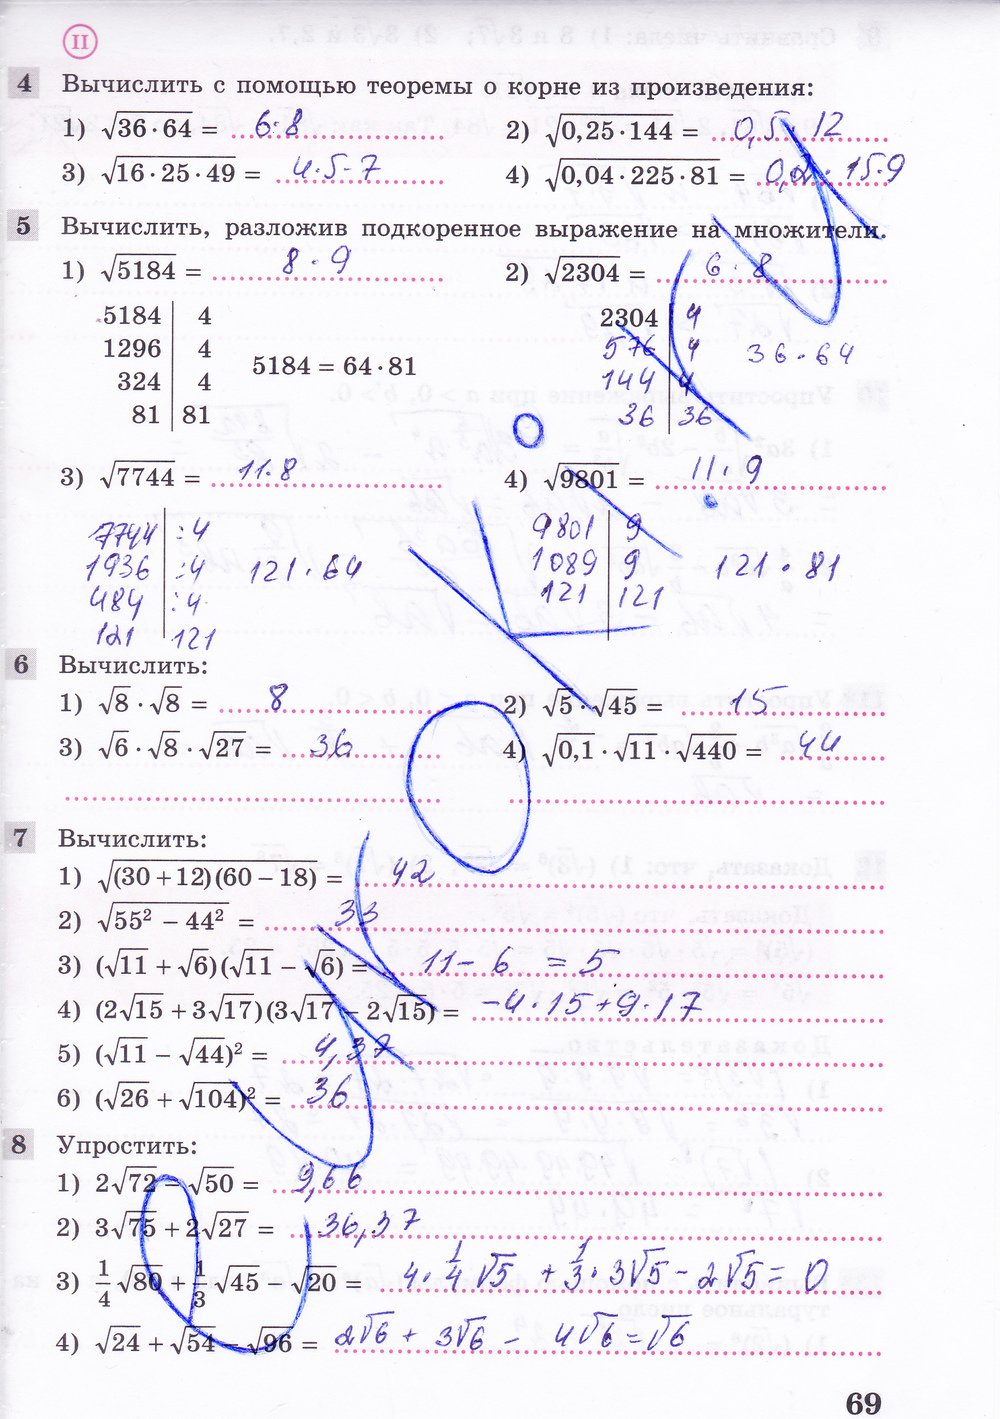 II
4 Вычислить с помощью теоремы о корне из произведения:
1) √36·64 = 6·8 2) √0,25·144 = 0,5·12
3) √16·25·49 = 4·5·7 4) √0,04·225·81 = 0,2·15·9
5 Вычислить, разложив подкоренное выражение на множители.
1) √5184 = 8·9 2) √2304 = 6·8
5184 | 4 2304 | 4
1296 | 4 5184 = 64·81 576 | 4 36·64
324 | 4 144 | 4
81 | 81 36 | 36
3) √7744 = 11·8 4) √9801 = 11·9
7744 | :4 9801 | 9
1936 | :4 121·64 1089 | 9 121·81
484 | :4 121 | 121
121 | 121
6 Вычислить:
1) √8 · √8 = 8 2) √5 · √45 = 15
3) √6 · √8 · √27 = 36 4) √0,1 · √11 · √440 = 44
7 Вычислить:
1) √(30 + 12)(60 − 18) = 42
2) √55² − 44² = 33
3) (√11 + √6)(√11 − √6) = 11 − 6 = 5
4) (2√15 + 3√17)(3√17 − 2√15) = −4·15+9·17
5) (√11 − √44)² = 4,37
6) (√26 + √104)² = 36
8 Упростить:
1) 2√72 − √50 = 9,66
2) 3√75 + 2√27 = 36,37
3) 1/4 √80 + 1/3 √45 − √20 = 4·1/4 √5 + 1/3·3√5 − 2√5 = 0
4) √24 + √54 − √96 = 2√6 + 3√6 − 4√6 = √6
69